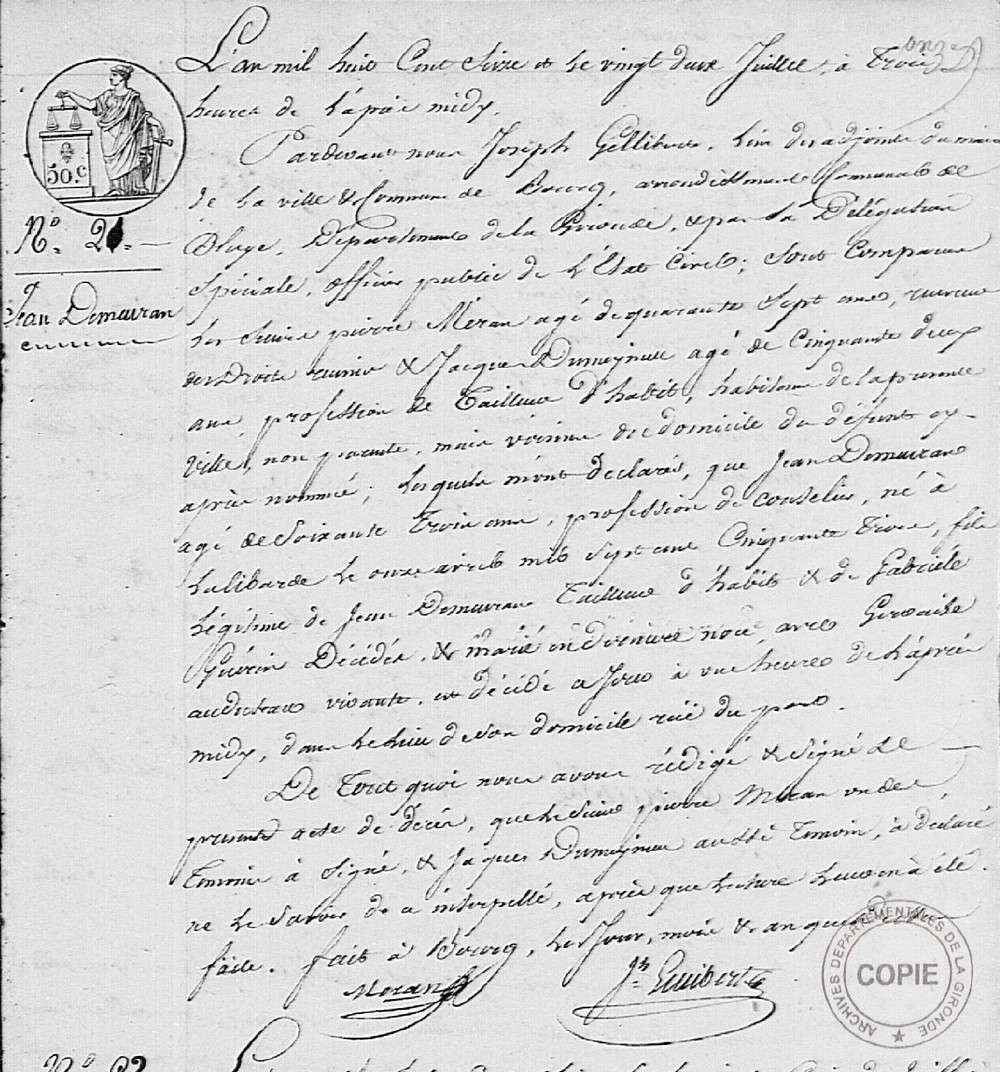 onze
L'an mil huit Cent Seize et le vingt deux Juillet, à Trois
heures de l'après midy.
Pardevant nous Joseph Gellibert, l'un des adjoints du maire
de la ville & Commune de Bourg, arrondissement Communal de
Blaye, Département de la Gironde, & par sa Délégation
Spéciale, officier public de l'état Civil; Sont Comparus
50.c
N.o 21.
Jean Demeuran
les Sieurs pierre Meran agé de quarante Sept ans,
des Droits réunis & Jacques Dumeynieu agé de Cinquante deux
ans profession de Tailleur d'habit, habitans de la presente
Ville, non parents, mais voisins du domicile du défunt cy-
après nommé; lesquels m'ont declarés, que Jean Demeuran
agé de Soixante Trois ans, profession de cordelier, né à
Lalibarde le onze avril mil Sept cent Cinquante Trois, fils
légitime de Jean Demeuran Tailleur d'habit & de Gabriéle
Guérin Décédés, & marié en Derniere noce, avec Gervaise
audureau vivante, est décédé ce Jour à une heure de l'après
midy, dans le lieu de Son domicile rüe du port.
De Tout quoi nous avons rédigé & Signé le
present acte de décès, que le Sieur pierre Meran un des
Temoins à Signé, & Jaques Dumeynieu aussi Temoin, à declaré
ne le Savoir de ce interpellé, après que lecture leur en à été
faite. fait à Bourg, les Jour, mois & an que
Meran
Jh Guibert
N.o 22
ARCHIVES DEPARTEMENTALES DE LA GIRONDE
COPIE